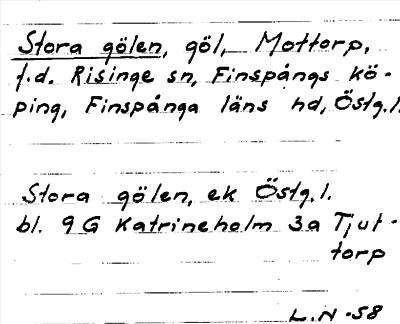 Stora gölen, göl, Mottorp,
f.d. Risinge sn, Finspångs kö-
ping, Finspånga läns hd, Östg.l.
Stora gölen, ek Östg.l.
bl. 9G Katrineholm 3a Tjut-
torp
L.N -58